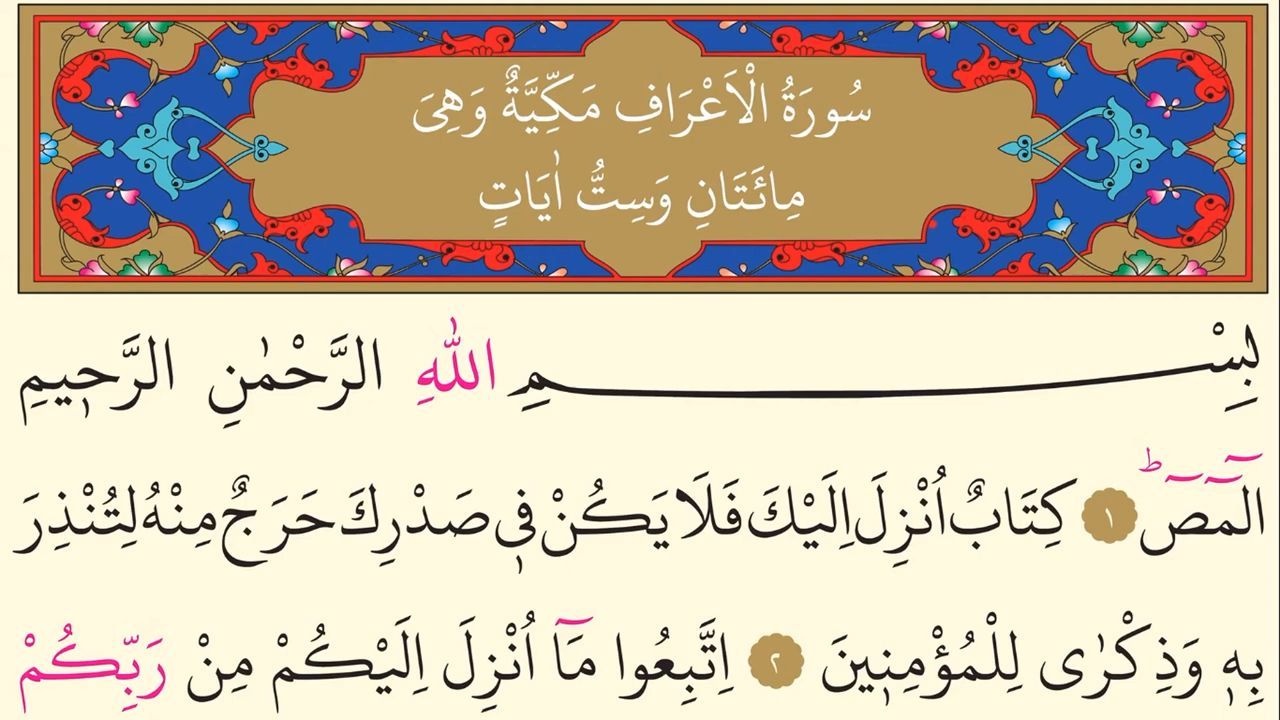 سُورَةُ الْاَعْرَافِ مَكِّيَّةٌ وَهِىَ
مِائَتَانِ وَسِتُّ اٰيَاتٍ
بِسْمِ اللّٰهِ الرَّحْمٰنِ الرَّحٖيمِ
الٓمٓصٓ ط ١ كِتَابٌ اُنْزِلَ اِلَيْكَ فَلَا يَكُنْ فٖى صَدْرِكَ حَرَجٌ مِنْهُ لِتُنْذِرَ
بِهٖ وَذِكْرٰى لِلْمُؤْمِنٖينَ ٢ اِتَّبِعُوا مَٓا اُنْزِلَ اِلَيْكُمْ مِنْ رَبِّكُمْ